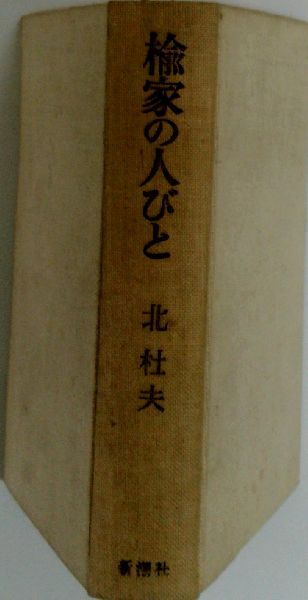 楡家の人びと
北杜夫
新潮社